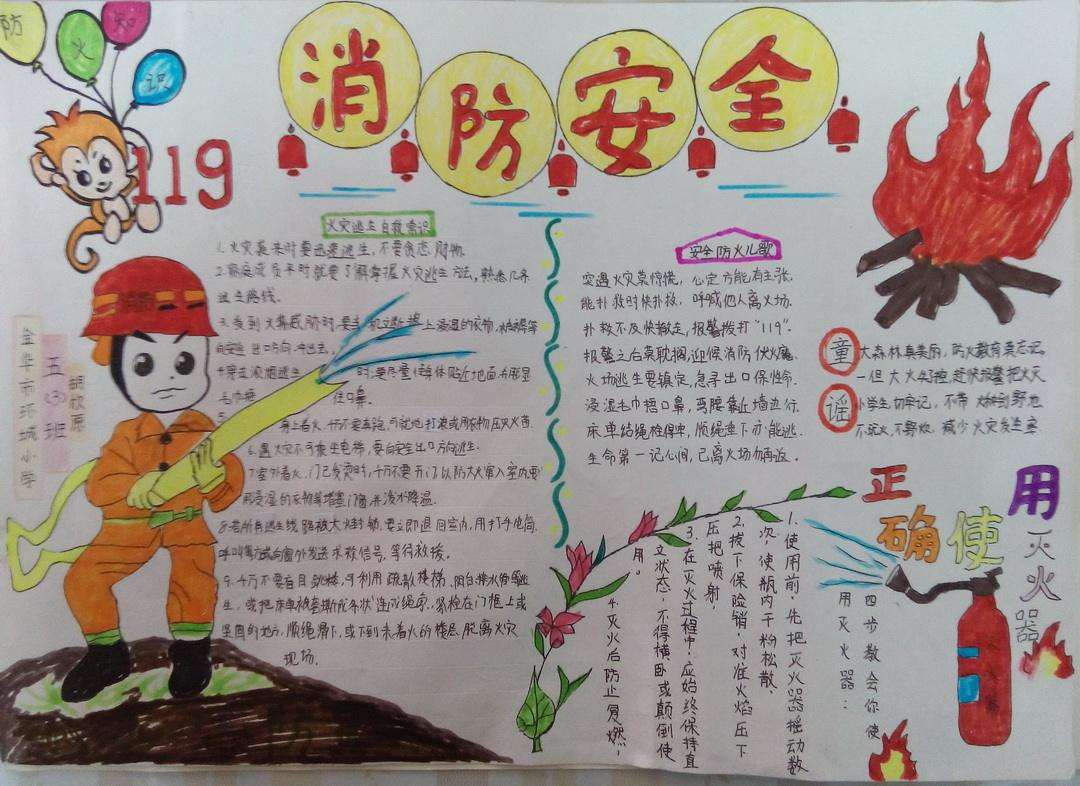 防
火
知
识
消防安全
119
火灾逃生自救常识
1.火灾袭来时要迅速逃生,不要贪恋财物.
2.家庭成员平时就要了解掌握火灾逃生方法,熟悉几条
逃生路线.
3.受到火势威胁时,要当机立断披上浸湿的衣物、
向安全出口方向冲出去.
4.穿过浓烟逃生时,要尽量使身体贴近地面,
毛巾捂住口鼻.
身上着火,千万不要奔跑,可就地打滚或用厚重衣物压灭火苗.
6.遇火灾不可乘坐电梯,要向安全出口方向逃生.
7.室外着火,门已发烫时,千万不要开门,以防大火窜入室内,要
用浸湿的衣物等堵塞门窗,并泼水降温.
8.若所有逃生线路被大火封锁,要立即退回室内,用打手电筒、
呼叫等方式向窗外发送求救信号,等待救援.
9.千万不要盲目跳楼,可利用疏散楼梯、阳台、排水管等逃
生,或把床单被套撕成条状连成绳索,紧拴在门框上或
坚固的地方,顺绳滑下,或下到未着火的楼层,脱离火灾
现场.
金华市环城小学
五(3)班
胡欣原
安全防火儿歌
突遇火灾莫惊慌,心定方能有主张.
能扑救时快扑救,呼喊他人离火场.
扑救不及快撤走,报警拨打“119”.
报警之后莫耽搁,迎候消防伏火魔.
火场逃生要镇定,急寻出口保性命.
浸湿毛巾捂口鼻,弯腰靠近墙边行.
床单结绳栓得牢,顺绳垂下方能逃.
生命第一记心间,已离火场勿再返.
童
谣
大森林真美丽,防火教育莫忘记
一但大火
小学生切牢记,不带火种到野地
不玩火,不野炊,减少火灾发生率
正确使用灭火器
四步教会你使
用灭火器:
1.使用前,先把灭火器摇动数
次,使瓶内干粉松散.
2.拔下保险销,对准火焰压下
压把喷射.
3.在灭火过程中,应始终保持直
立状态,不得横卧或颠倒使
用.
4.灭火后防止复燃,